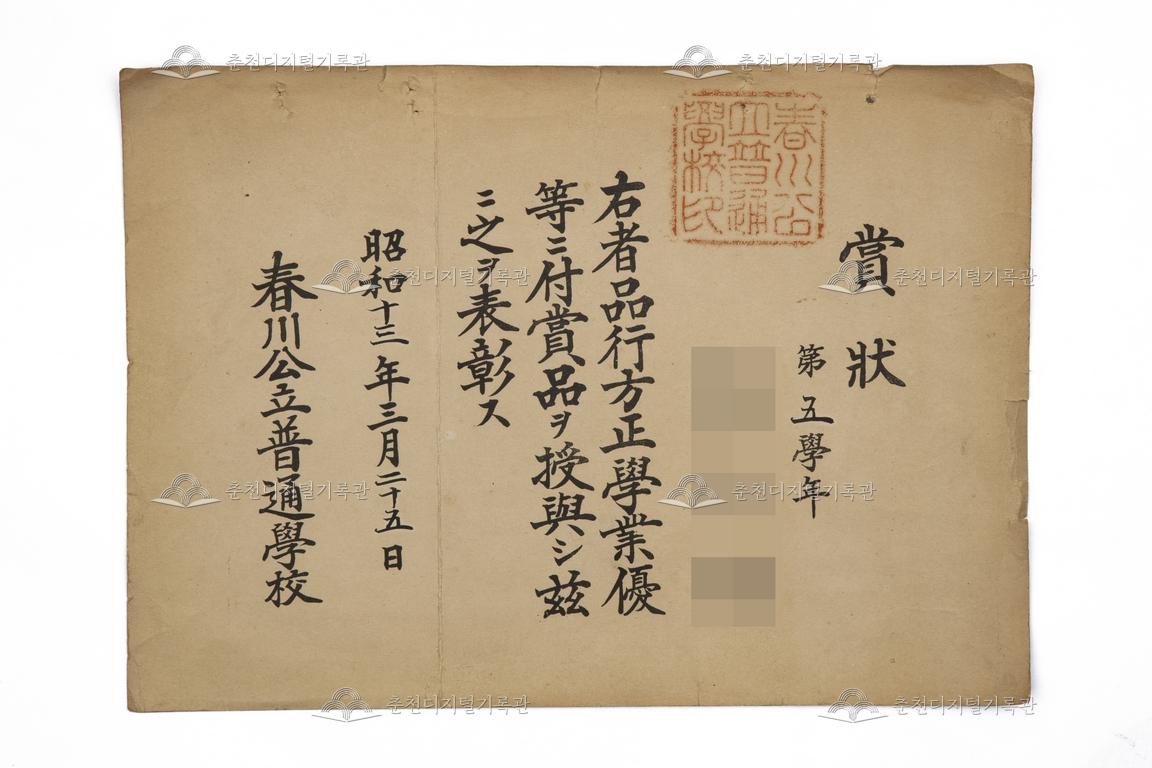 賞狀
第五學年
春川公
立普通
學校印
右者品行方正學業優
等ニ付賞品ヲ授與シ玆
ニ之ヲ表彰ス
昭和十三年三月二十五日
春川公立普通學校
춘천디지털기록관
춘천디지털기록관
춘천디지털기록관
춘천디지털기록관
춘천디지털기록관
춘천디지털기록관
춘천디지털기록관
춘천디지털기록관